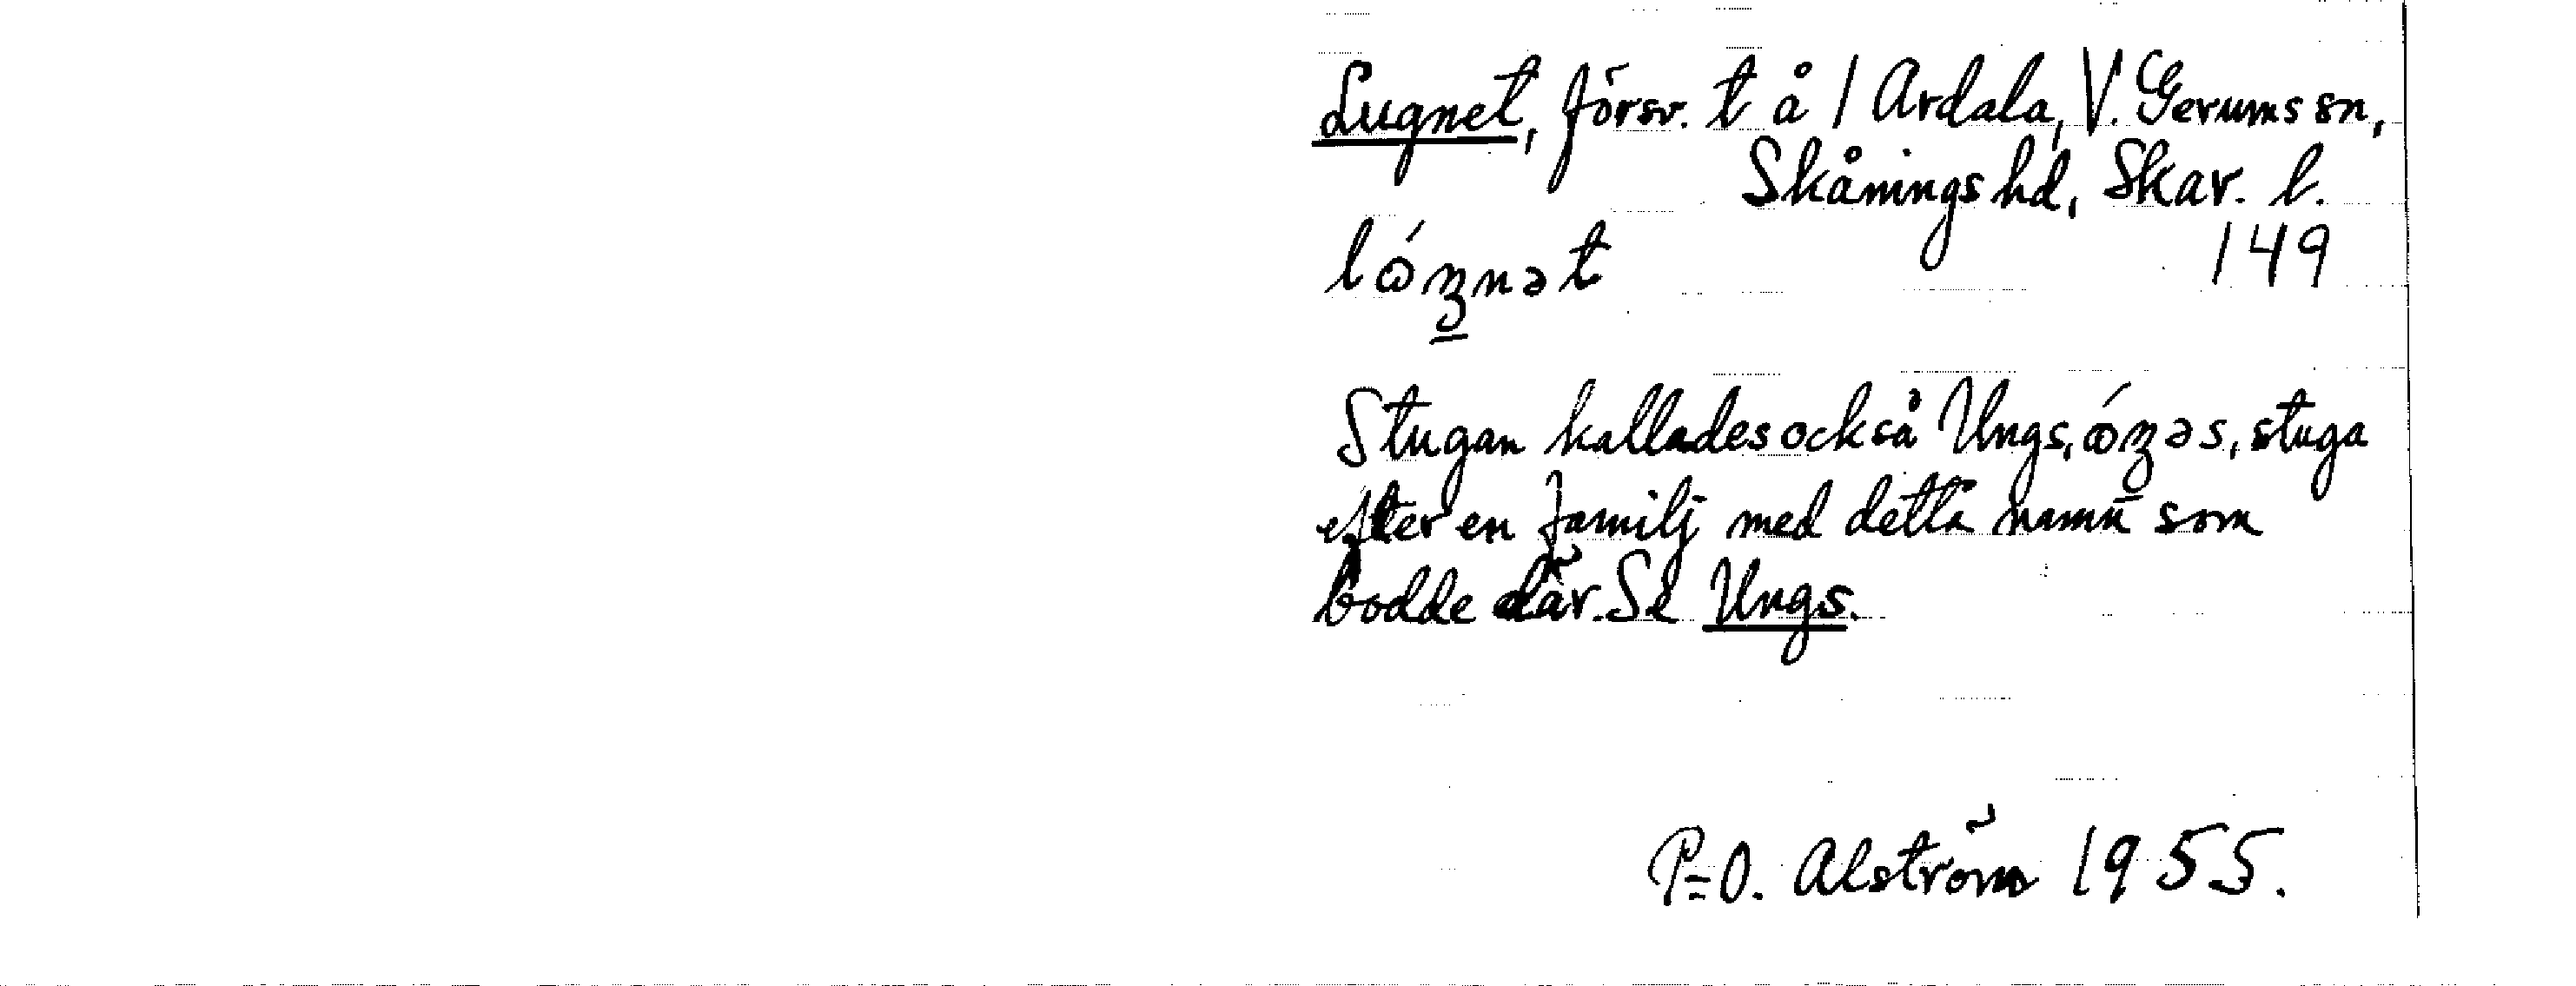 Lugnet, försv. t å 1 Ardala, V. Gerums sn,
Skånings hd, Skar. l.
lóʒnət 149
Stugan kallades också Ungs, óʒəs, stuga
efter en familj med detta namn som
bodde där. Se Ungs.
P=O. Alström 1955.